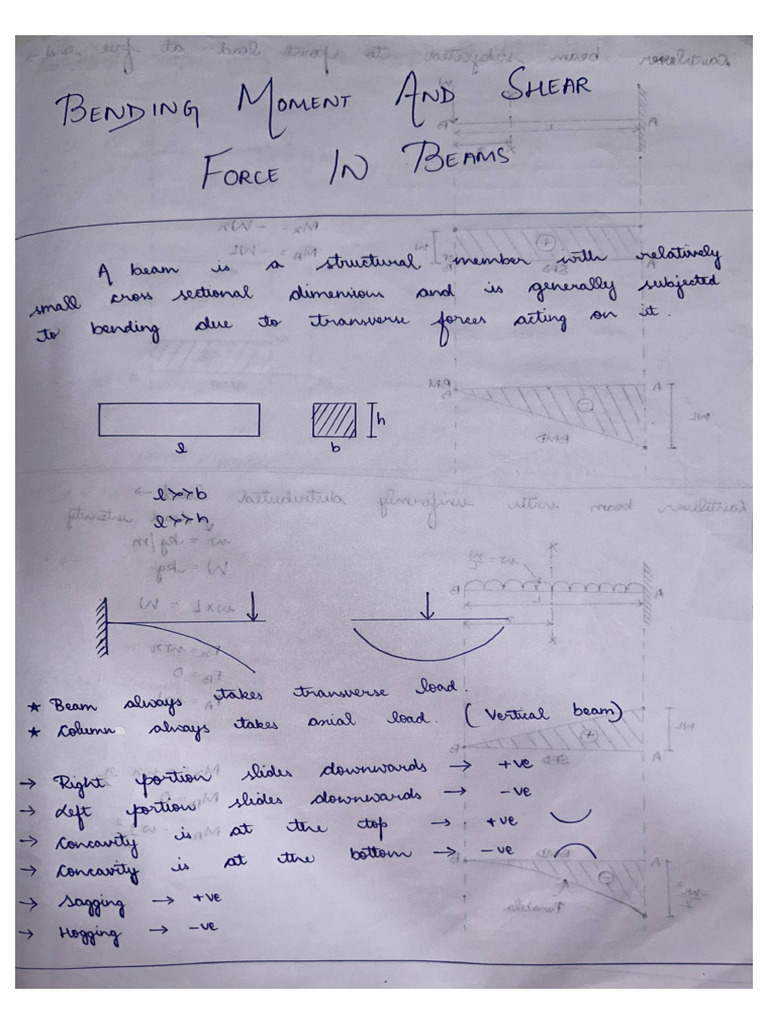 BENDING MOMENT AND SHEAR
FORCE IN BEAMS
A beam is a structural member with relatively
small cross sectional dimensions and is generally subjected
to bending due to transverse forces acting on it.
h
l b
l>>b
l>>h
★ Beam always takes transverse load.
★ Column always takes axial load. (Vertical beam)
→ Right portion slides downwards → +ve
→ Left portion slides downwards → -ve
→ Concavity is at the top → +ve
→ Concavity is at the bottom → -ve
→ Sagging → +ve
→ Hogging → -ve